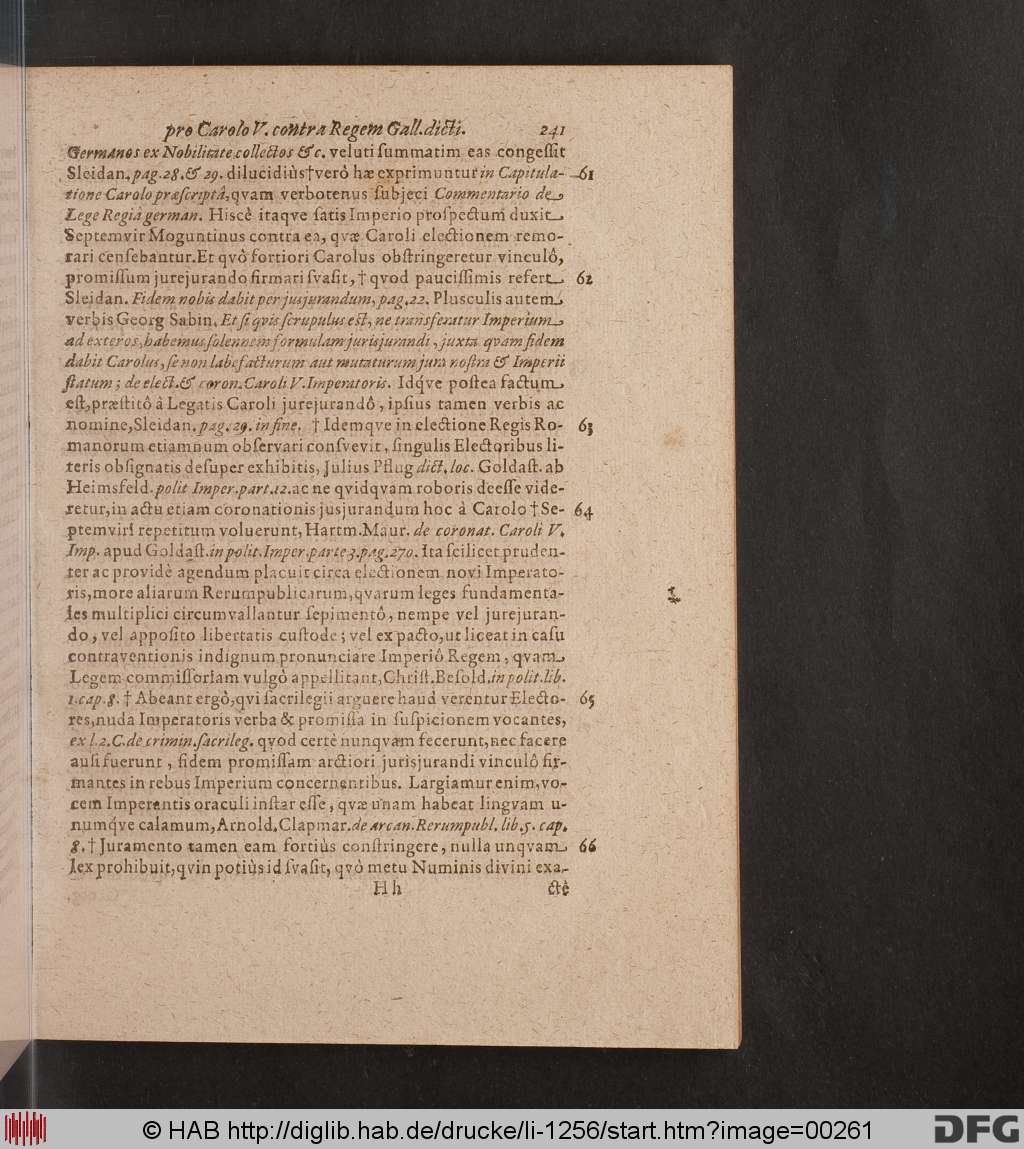 pro Carolo V. contra Regem Gall. dicti. 241
Germanos ex Nobilitate collectos &c. veluti ſummatim eas congeſſit
Sleidan. pag. 28. & 29. dilucidiùs † verò hæ exprimuntur in Capitula- 61
tione Carolo præſcriptâ, qvam verbotenus ſubjeci Commentario de
Lege Regiâ german. Hiſcè itaqve ſatis Imperio proſpectum duxit
Septemvir Moguntinus contra ea, qvæ Caroli electionem remo-
rari cenſebantur. Et qvò fortiori Carolus obſtringeretur vinculô,
promiſſum jurejurando firmari ſvaſit, † qvod pauciſſimis refert 62
Sleidan. Fidem nobis dabit per jusjurandum, pag. 22. Plusculis autem
verbis Georg Sabin. Et ſi qvis ſcrupulus eſt, ne transferatur Imperium
ad exteros, habemus ſolennem formulam jurisjurandi, juxta qvam fidem
dabit Carolus, ſe non labefacturum aut mutaturum jura noſtra & Imperii
ſtatum; de elect. & coron. Caroli V. Imperatoris. Idq́ve poſtea factum
eſt, præſtitô à Legatis Caroli jurejurandô, ipſius tamen verbis ac
nomine, Sleidan. pag. 29. in fine. † Idemqve in electione Regis Ro- 63
manorum etiamnum obſervari conſvevit, ſingulis Electoribus li-
teris obſignatis deſuper exhibitis, Julius Pflug dict. loc. Goldaſt. ab
Heimsfeld. polit Imper. part. 12. ac ne qvidqvam roboris deeſſe vide-
retur, in actu etiam coronationis jusjurandum hoc à Carolo † Se- 64
ptemviri repetitum voluerunt, Hartm. Maur. de coronat. Caroli V.
Imp. apud Goldaſt. in polit. Imper. parte 3. pag. 270. Ita ſcilicet pruden-
ter ac providè agendum placuit circa electionem novi Imperato-
ris, more aliarum Rerumpublicarum, qvarum leges fundamenta-
les multiplici circumvallantur ſepimentô, nempe vel jurejuran-
do, vel appoſito libertatis cuſtode; vel ex pacto, ut liceat in caſu
contraventionis indignum pronunciare Imperiô Regem, qvam
Legem commiſſoriam vulgò appellitant, Chriſt. Beſold. in polit. lib.
1. cap. 8. † Abeant ergò, qvi ſacrilegii arguere haud verentur Electo- 65
res, nuda Imperatoris verba & promiſſa in ſuſpicionem vocantes,
ex l. 2. C. de crimin. ſacrileg. qvod certè nunqvam fecerunt, nec facere
auſi fuerunt, fidem promiſſam arctiori jurisjurandi vinculô fir-
mantes in rebus Imperium concernentibus. Largiamur enim, vo-
cem Imperantis oraculi inſtar eſſe, qvæ unam habeat lingvam u-
numq́ve calamum, Arnold. Clapmar. de arcan. Rerumpubl. lib. 5. cap.
8. † Juramento tamen eam fortiùs conſtringere, nulla unqvam 66
lex prohibuit, qvin potiùs id ſvaſit, qvò metu Numinis divini exa-
H h ctè
© HAB http://diglib.hab.de/drucke/li-1256/start.htm?image=00261
DFG